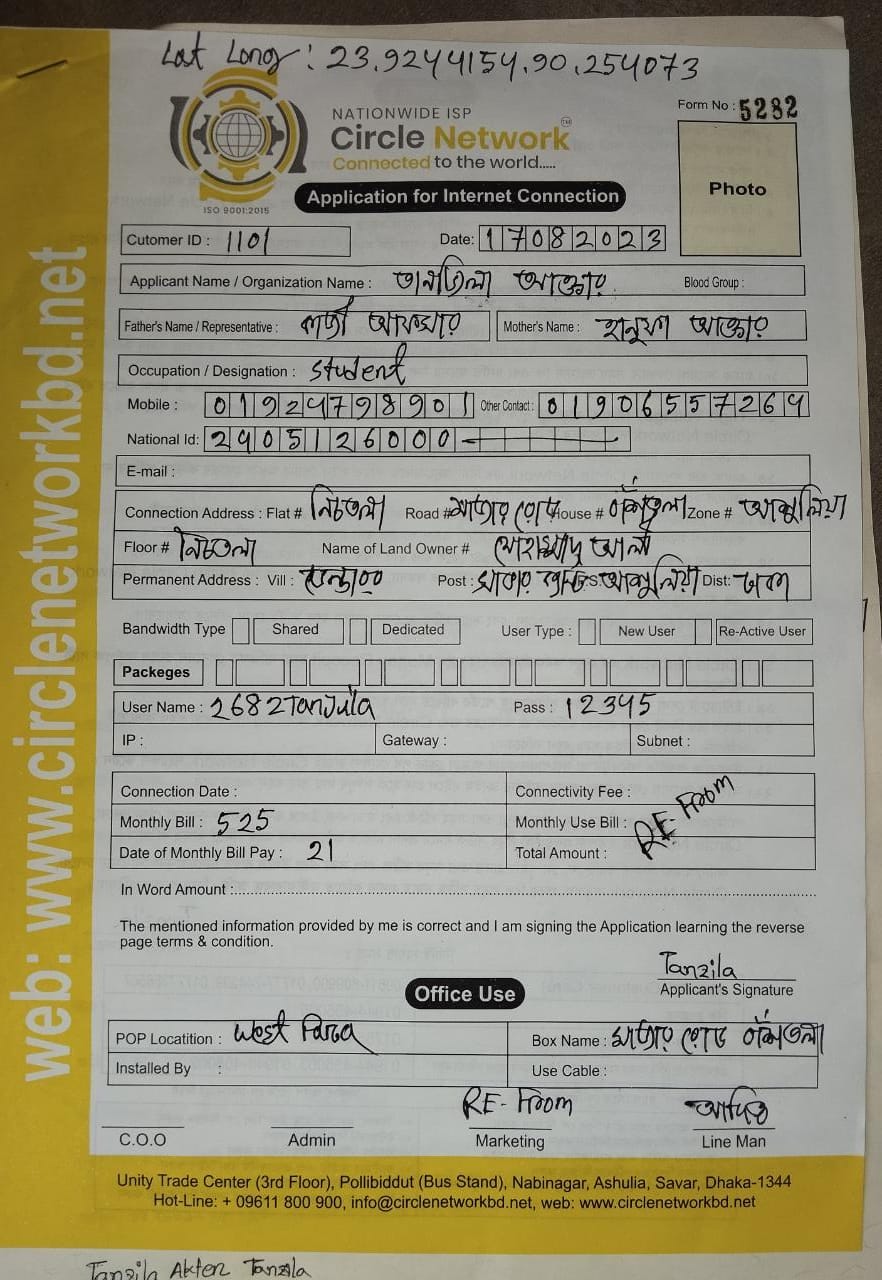 Lat Long: 23.9244154,90.254073
NATIONWIDE ISP
Form No : 5282
Circle Network TM
Connected to the world.....
Photo
Application for Internet Connection
ISO 9001:2015
Cutomer ID : 1101 Date: 17082023
Applicant Name / Organization Name : তানজিলা আক্তার Blood Group :
Father's Name / Representative : কাজী আফছার Mother's Name : হানুফা আক্তার
Occupation / Designation : Student
Mobile : 01924798901 Other Contact : 01906557264
National Id: 2405126000
E-mail :
Connection Address : Flat # নিচতলা Road # মাজার রোড House # Zone # আশুলিয়া
Floor # নিচতলা Name of Land Owner # মোহাম্মদ আলী
Permanent Address : Vill : Post : P.S: আশুলিয়া Dist: ঢাকা
Bandwidth Type Shared Dedicated User Type : New User Re-Active User
Packeges
User Name : 2682Tanjula Pass : 12345
IP : Gateway : Subnet :
Connection Date : Connectivity Fee :
Monthly Bill : 525 Monthly Use Bill : RE-From
Date of Monthly Bill Pay : 21 Total Amount :
In Word Amount :
The mentioned information provided by me is correct and I am signing the Application learning the reverse
page terms & condition.
Tanzila
Applicant's Signature
Office Use
POP Locatition : West Para Box Name : মাজার রোড
Installed By : Use Cable :
RE-From
C.O.O Admin Marketing Line Man
Unity Trade Center (3rd Floor), Pollibiddut (Bus Stand), Nabinagar, Ashulia, Savar, Dhaka-1344
Hot-Line: + 09611 800 900, info@circlenetworkbd.net, web: www.circlenetworkbd.net
web: www.circlenetworkbd.net
Tanzila Akter Tanzila